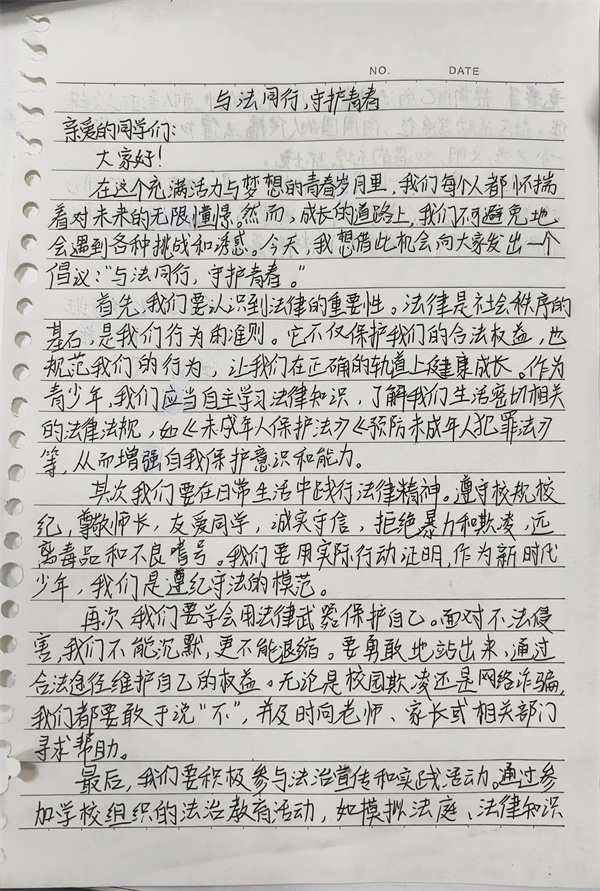 NO. DATE
与法同行,守护青春
亲爱的同学们:
大家好!
在这个充满活力与梦想的青春岁月里,我们每个人都怀揣
着对未来的无限憧憬。然而,成长的道路上,我们不可避免地
会遇到各种挑战和诱惑。今天,我想借此机会向大家发出一个
倡议:“与法同行,守护青春。”
首先,我们要认识到法律的重要性。法律是社会秩序的
基石,是我们行为的准则。它不仅保护我们的合法权益,也
规范我们的行为,让我们在正确的轨道上健康成长。作为
青少年,我们应当自主学习法律知识,了解我们生活密切相关
的法律法规,如《未成年人保护法》《预防未成年人犯罪法》
等,从而增强自我保护意识和能力。
其次我们要在日常生活中践行法律精神。遵守校规校
纪,尊敬师长,友爱同学,诚实守信,拒绝暴力和欺凌,远
离毒品和不良嗜号。我们要用实际行动证明,作为新时代
少年,我们是遵纪守法的模范。
再次 我们要学会用法律武器保护自己。面对不法侵
害,我们不能沉默,更不能退缩。要勇敢地站出来,通过
合法途径维护自己的权益。无论是校园欺凌还是网络诈骗,
我们都要敢于说“不”,并及时向老师、家长或相关部门
寻求帮助。
最后,我们要积极参与法治宣传和实践活动。通过参
加学校组织的法治教育活动,如模拟法庭、法律知识